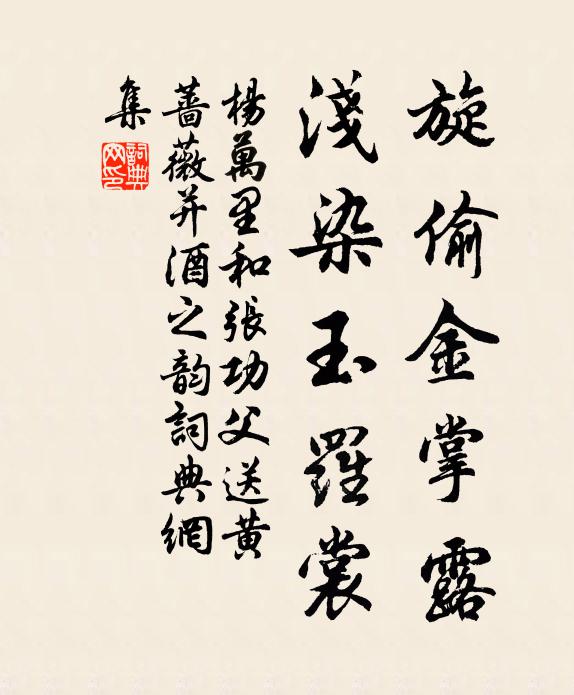 旋偷金掌露
淺染玉羅裳
楊萬里和張功父送黃
薔薇并酒之韵詞典網
集
詞典網印